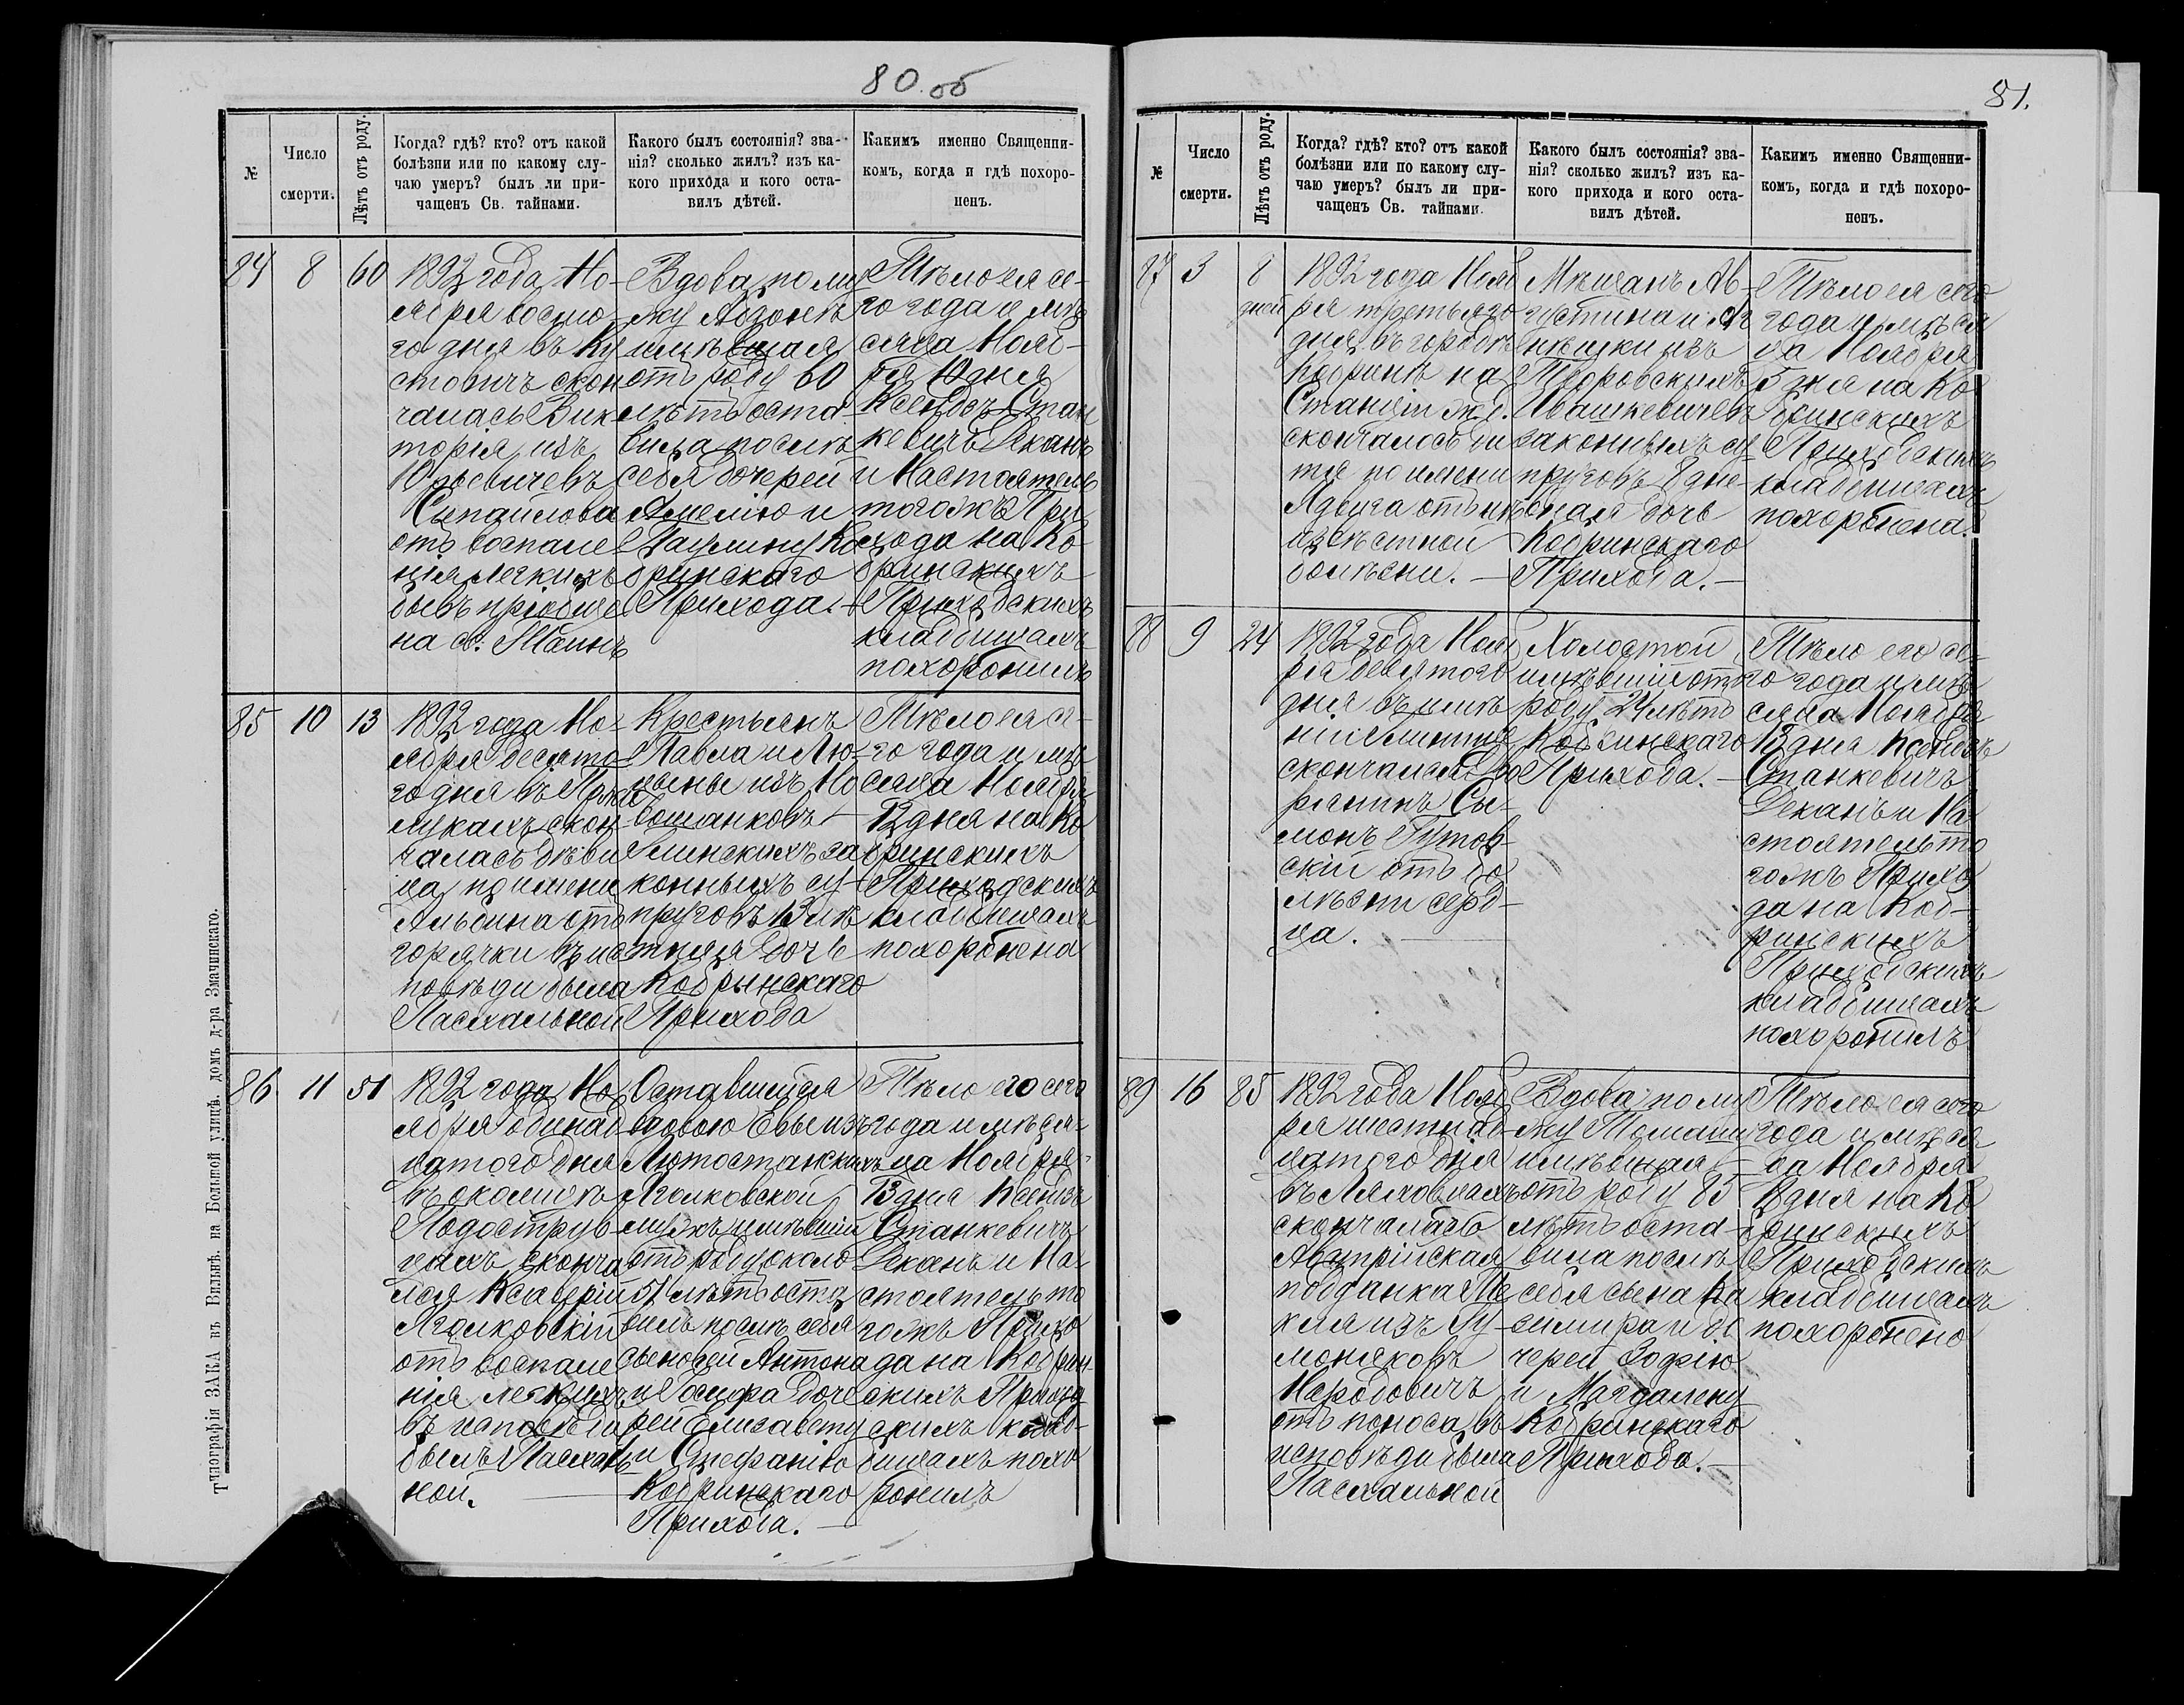 80 об
№
Число
смерти.
Лѣтъ отъ роду.
Когда? гдѣ? кто? отъ какой
болѣзни или по какому слу-
чаю умеръ? былъ ли при-
чащенъ Св. тайнами.
Какого былъ состоянія? зва-
нія? сколько жилъ? изъ ка-
кого прихода и кого оста-
вилъ дѣтей.
Какимъ именно Священни-
комъ, когда и гдѣ похоро-
ненъ.
84
8
60
1892 года Но-
ября восмо-
го дня въ Ку
стовичъ скон
чалась Вик
торія изъ
Юрьевичевъ
Сыпайлова
отъ воспале-
нія легкихъ
бывъ пріобще
на св. Таинъ
Вдова по му
жу
имѣвшая
отъ роду 60
лѣтъ оста
вила послѣ
себя дочерей
Амелію и
Паулину Ко
бринскаго
Прихода.
Тѣло ея се-
го года и мѣ
сяца Нояб-
ря 10 дня
Ксендзъ Стан
кевичъ Деканъ
и Настоятель
тогожъ При
хода на Ко
бринскихъ
Приходскихъ
кладбищахъ
похоронилъ
85
10
13
1892 года Но-
ября десято
го дня въ
лукахъ скон
чалась дѣви
ца по имени
Альбина отъ
горячки въ ис
повѣди была
Пасхальной
Крестьянъ
Павла и Лю-
цыны изъ Но
вошанковъ
Глинскихъ за
конныхъ су-
пруговъ 13 лѣ
тняя дочь
Кобринскаго
Прихода
Тѣло ея се-
го года и мѣ
сяца Ноября
12 дня на Ко
бринскихъ
Приходскихъ
кладбищахъ
похоронена
86
11
51
1892 года Но
ября одинад
цатого дня
въ околицѣ
Подострув
ехъ сконча
лся Ксаверій
Яголковскій
отъ воспале
нія легкихъ
въ исповѣди
былъ Пасхаль
ной.
Оставшейся
вдовою Евы изъ
Лютостанскихъ
Яголковской
мужъ имѣвшій
отъ роду около
51 лѣтъ оста
вилъ послѣ себя
сыновей Антона
и Іосифа доче
рей Елисавету
и Стефанію
Кобринскаго
Прихода.
Тѣло его сего
года и мѣся-
ца Ноября
13 дня Ксендзъ
Станкевичъ
Деканъ и На
стоятель то
гожъ Прихо
да на Кобрин-
скихъ Приход
скихъ клад-
бищахъ похо
ронилъ
Типографія ЗАКА въ Вильнѣ. на Большой улицѣ. домъ д-ра Змачинскаго.
81.
№
Число
смерти.
Лѣтъ отъ роду.
Когда? гдѣ? кто? отъ какой
болѣзни или по какому слу-
чаю умеръ? былъ ли при-
чащенъ Св. тайнами.
Какого былъ состоянія? зва-
нія? сколько жилъ? изъ ка-
кого прихода и кого оста-
вилъ дѣтей.
Какимъ именно Священни-
комъ, когда и гдѣ похоро-
ненъ.
87
3
8
дней
1892 года Нояб
ря третьяго
дня въ городѣ
Кобринѣ на
Станціи ж.д.
скончалось ди
тя по имени
Ядвига отъ не
извѣстной
болѣзни.
Мѣщанъ Ав-
густина и Аг
нѣшки изъ
Пѣоровскихъ
Ивашкевичевъ
законныхъ су-
пруговъ 8 дне
вная дочь
Кобринскаго
Прихода.
Тѣло ея сего
года и мѣся
ца Ноября
5 дня на Ко
бринскихъ
Приходскихъ
кладбищахъ
похоронена.
88
9
24
1892 года Нояб
ря девятого
дня въ имѣ
ніи
скончался Дво
рянинъ Сы-
монъ Гутов-
скій отъ бо
лѣзни серд-
ца.
Холостой
имѣвшій отъ
роду 24 лѣтъ
Кобринскаго
Прихода.
Тѣло его се-
го года и мѣ
сяца Ноября
12 дня Ксендзъ
Станкевичъ
Деканъ и На
стоятель то
гожъ Прихо
да на Коб-
ринскихъ
Приходскихъ
кладбищахъ
похоронилъ
89
16
85
1892 года Нояб
ря шестнад-
цатого дня
въ Ляховцахъ
скончалась
Австрійская
подданка Те
кля изъ Гу-
моняковъ
Народовичъ
отъ поноса, въ
исповѣди была
Пасхальной
Вдова по му
жу Томашу
имѣвшая
отъ роду 85
лѣтъ оста-
вила послѣ
себя сына Ка
зимира и до
черей Зофію
и Магдалену
Кобринскаго
Прихода.
Тѣло ея сего
года и мѣся
ца Ноября
18 дня на Ко
бринскихъ
Приходскихъ
кладбищахъ
похоронено